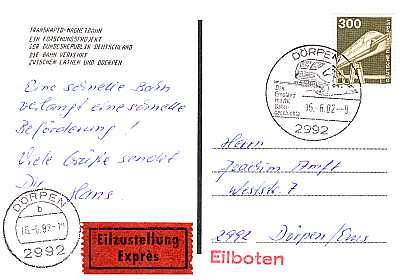 TRANSRAPID-MAGNETBAHN
EIN FORSCHUNGSPROJEKT
DER BUNDESREPUBLIK DEUTSCHLAND
DIE BAHN VERKEHRT
ZWISCHEN LATHEN UND DOERPEN
Eine schnelle Bahn
verlangt eine schnelle
Beförderung!
Viele Grüße sendet
Dir Hans.
DÖRPEN
b
16.-6.92-11
2992
Eilzustellung
Exprès
300
DÖRPEN
Das
Emsland
macht
Bahn-
geschichte
15.-6.92--9
2992
Herrn
Joachim Amft
Weststr. 7
2992 Dörpen/Ems
Eilboten